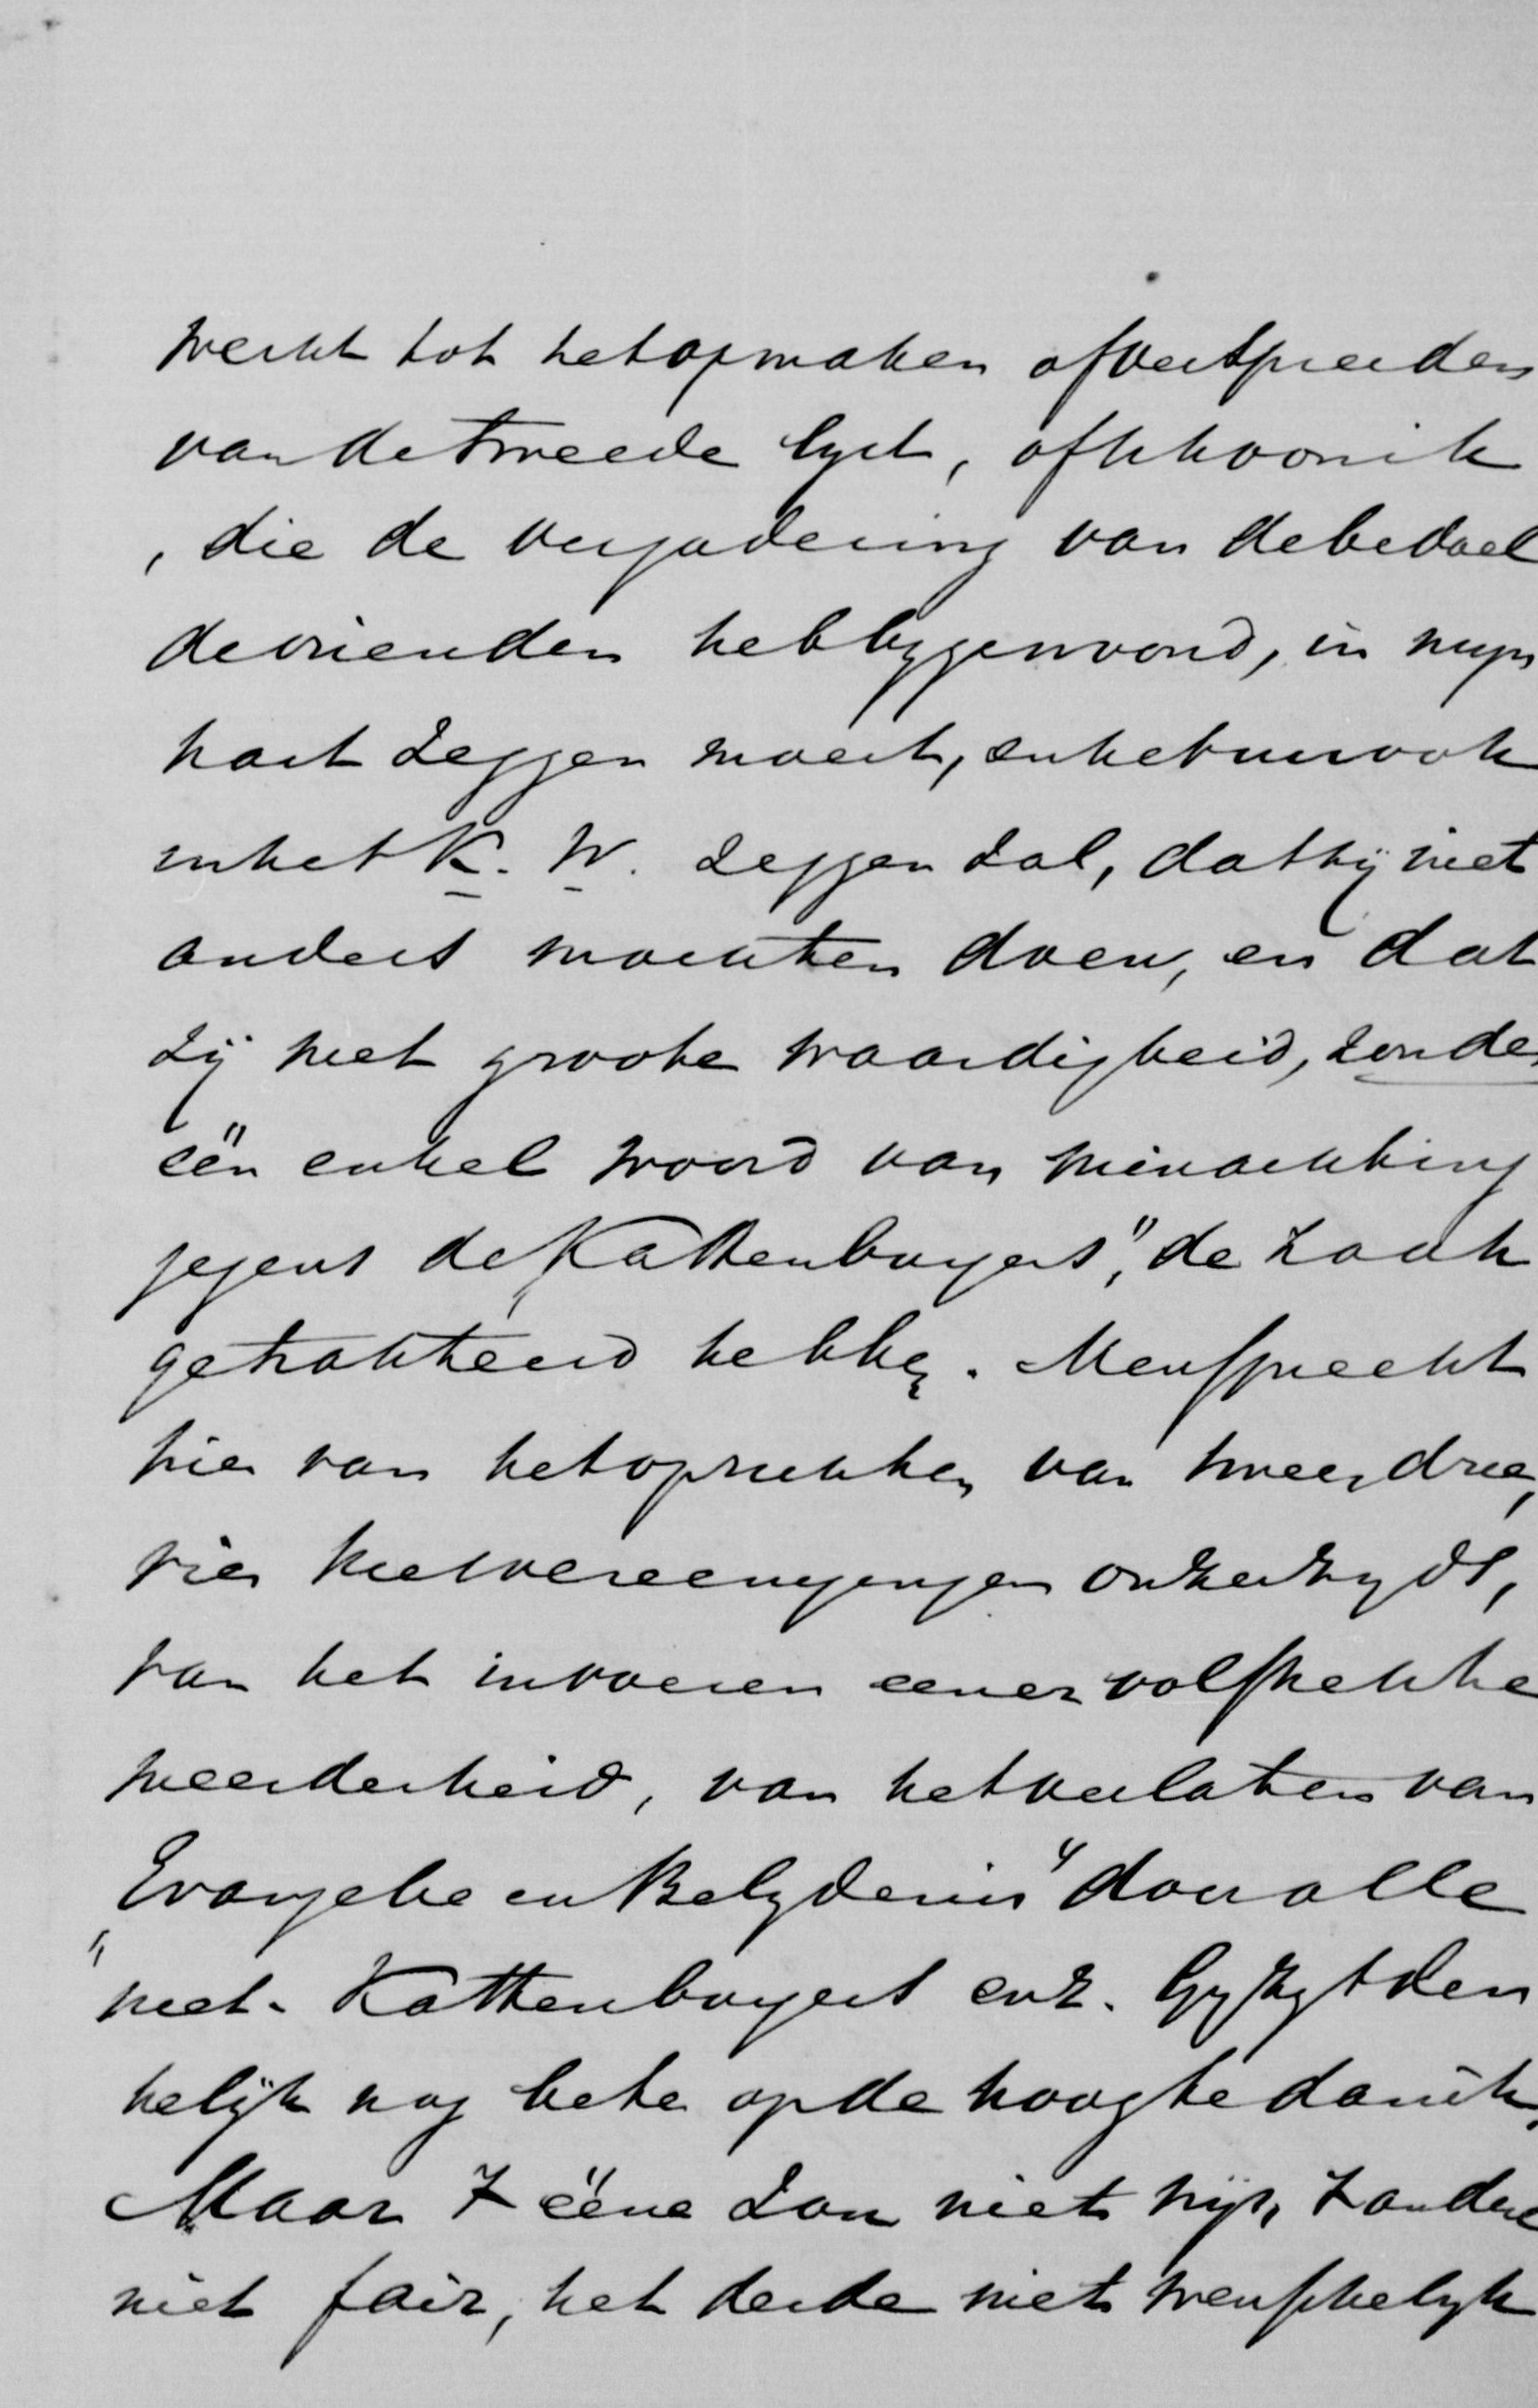 werkt tot het opmaken of verspreiden
van de tweede lyst, ofschoon ik
, die de vergadering van de bedoel
de vrienden heb bygewoond, in myn
hart zeggen moest, en het nu ook
in het K. W. zeggen zal, dat zij niet
anders mochten doen, en dat
zij met groote waardigheid, zonder
één enkel woord van minachting
jegens de „Kattenburgers", de zaak
getrakteerd hebben. Men spreekt
hier van het oprichten van twee, drie,
vier kiesvereenigingen onzerzyds,
van het invoeren eener volstrekte
meerderheid, van het verlaten van
„Evangelie en Belydenis" door alle
niet-Kattenburgers enz. Gy zyt den
kelijk nog beter op de hoogte dan ik.
Maar 't ééne zou niet wijs, 't andere
niet fair, het derde niet wenschelyk